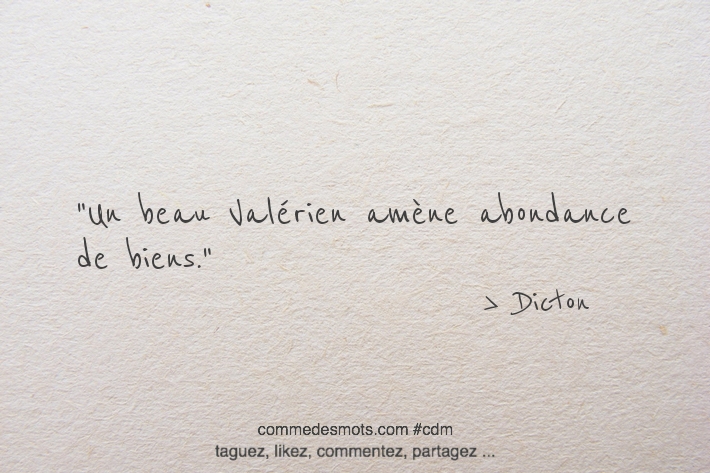 "Un beau Valérien amène abondance
de biens."
> Dicton
commedesmots.com #cdm
taguez, likez, commentez, partagez ...